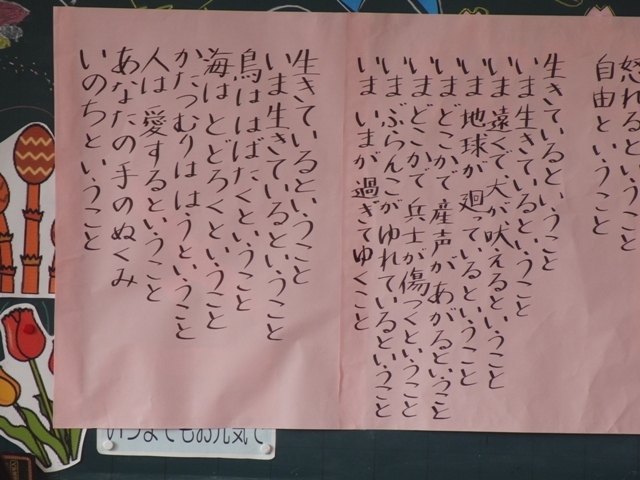 怒れるということ
自由ということ
生きているということ
いま生きているということ
いま遠くで犬が吠えるということ
いま地球が廻っているということ
いまどこかで産声があがるということ
いまどこかで兵士が傷つくということ
いまぶらんこがゆれているということ
いまいまが過ぎてゆくこと
生きているということ
いま生きているということ
鳥ははばたくということ
海はとどろくということ
かたつむりははうということ
人は愛するということ
あなたの手のぬくみ
いのちということ
いつまでもお元気で